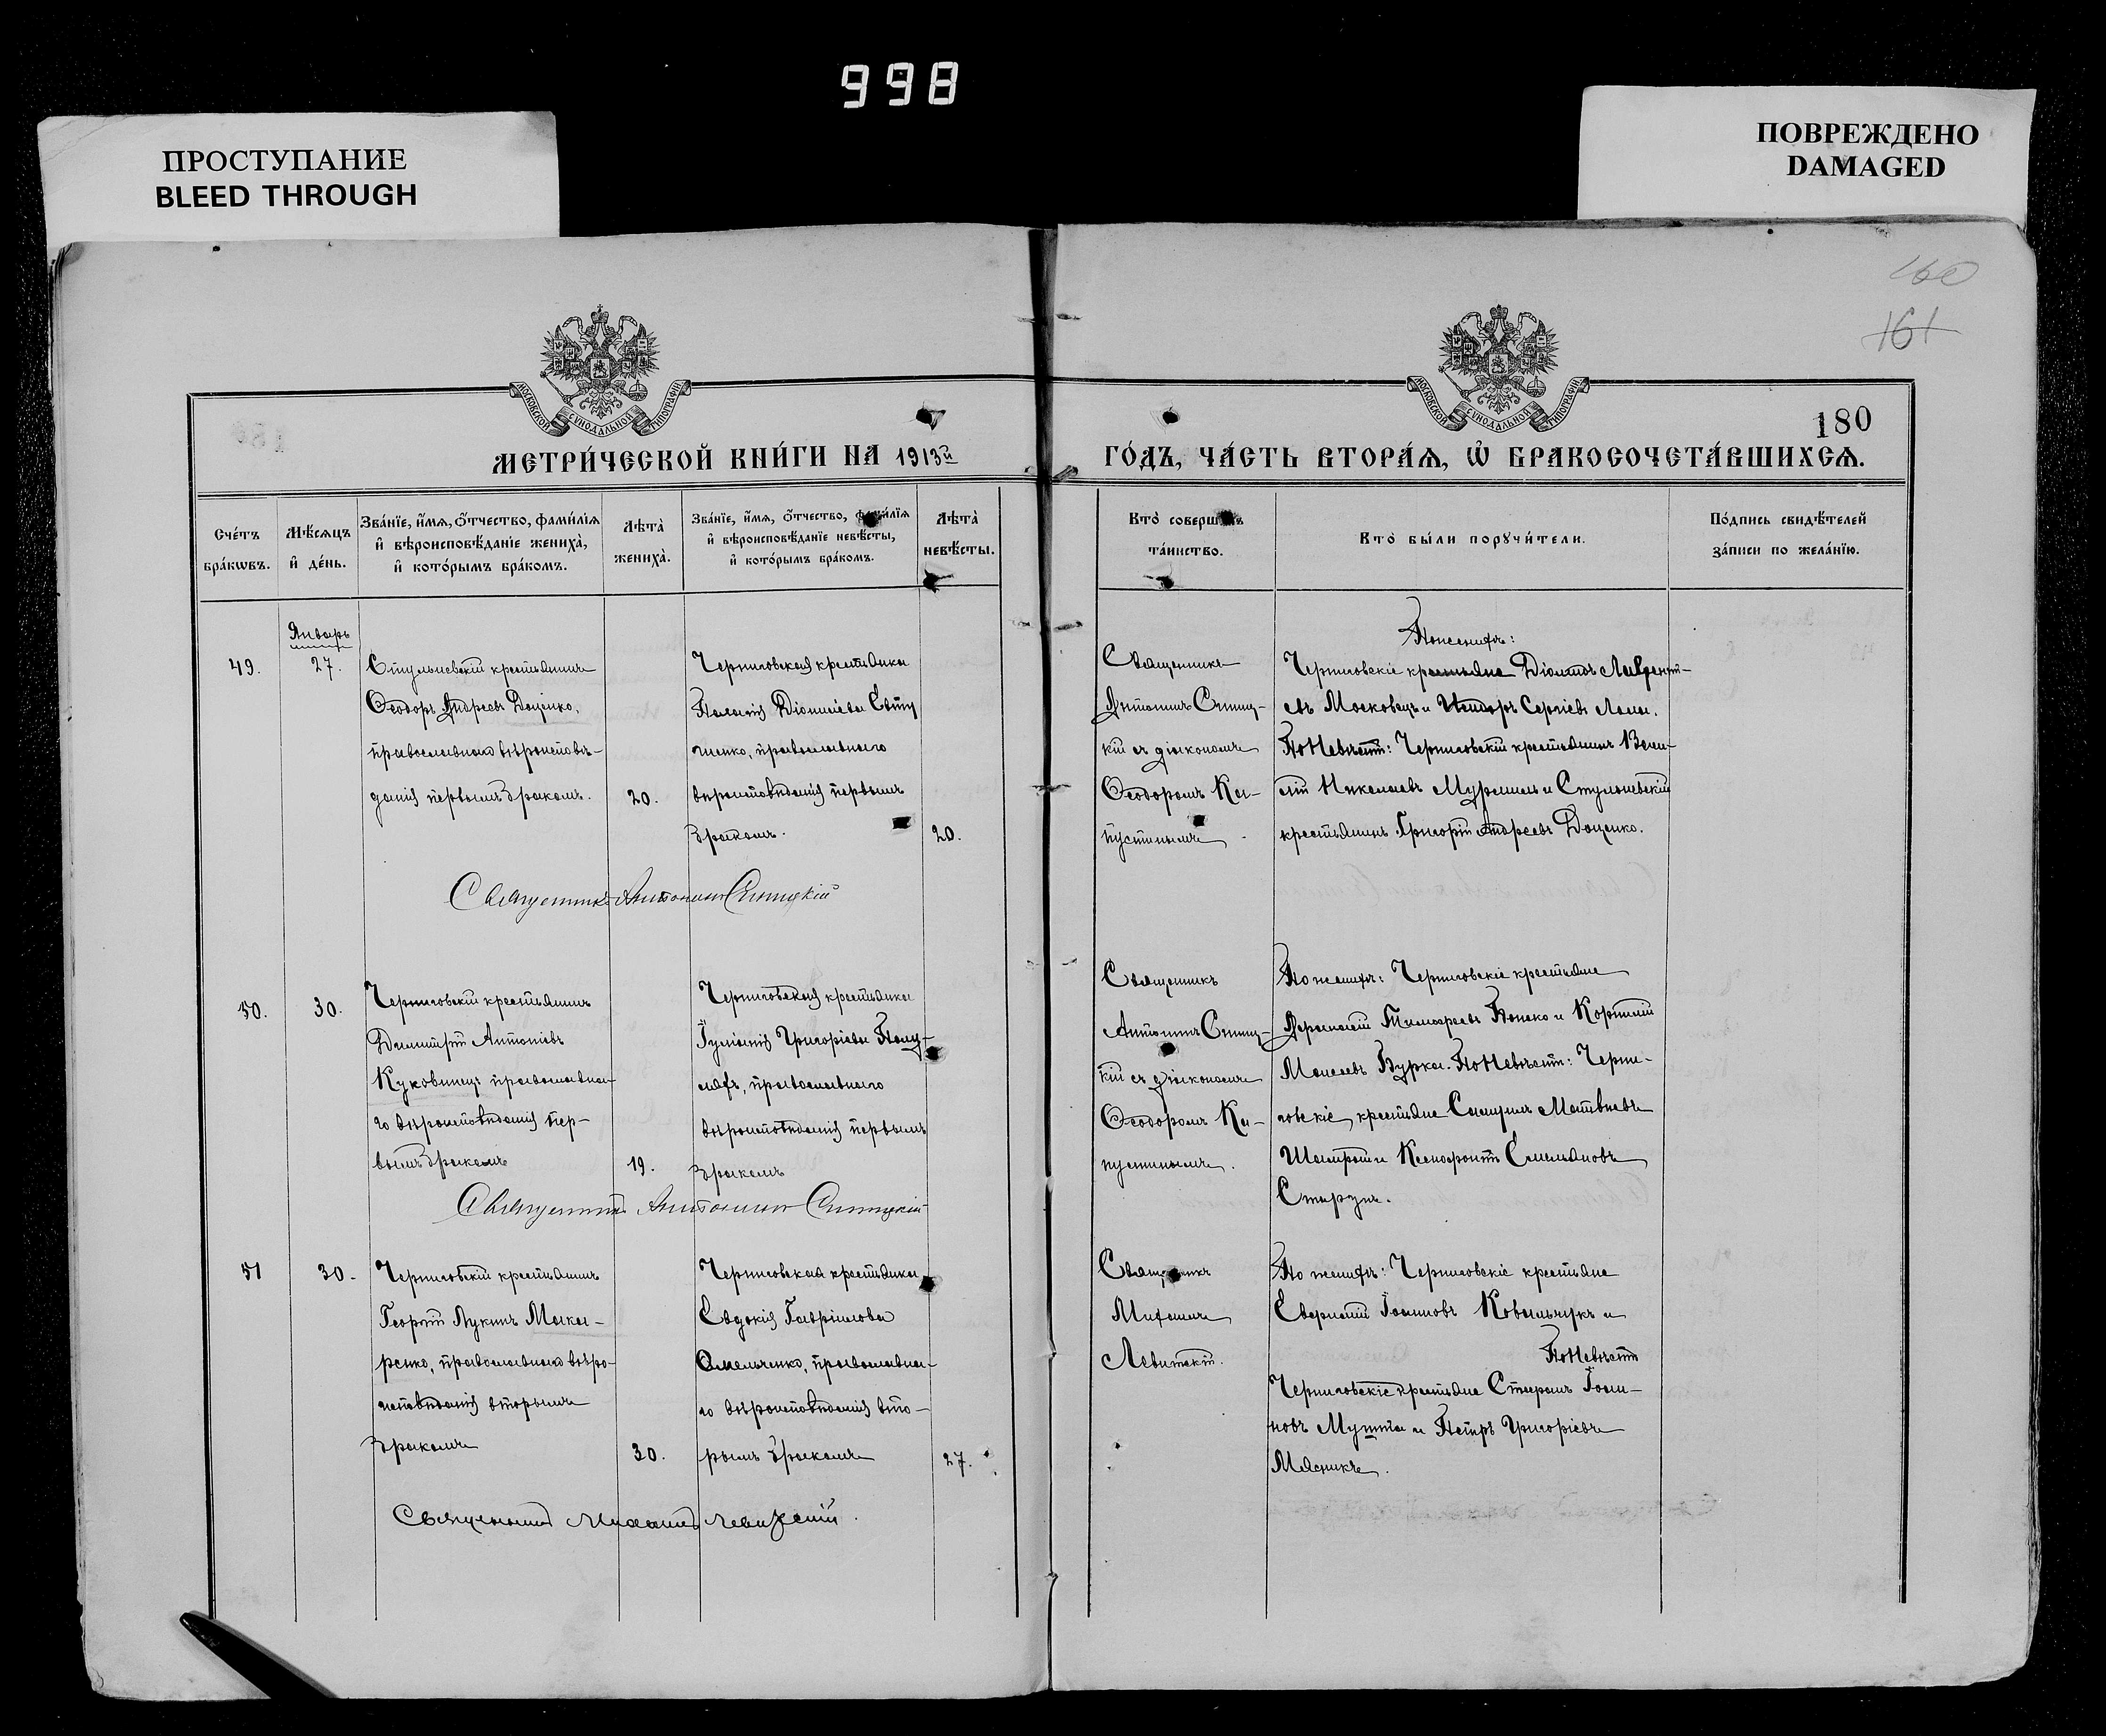 998
ПРОСТУПАНИЕ
BLEED THROUGH
ПОВРЕЖДЕНО
DAMAGED
160
161
МОСКОВСКОЙ СѴНОДАЛЬНОЙ ТИПОГРАФІИ
МОСКОВСКОЙ СѴНОДАЛЬНОЙ ТИПОГРАФІИ
180
МЕТРИ́ЧЕСКОЙ КНИ́ГИ НА 1913й
ГО́ДЪ, ЧА́СТЬ ВТОРА́Ѧ, Ѿ БРАКОСОЧЕТА́ВШИХСѦ.
Сче́тъ бра́кѡвъ.
Мѣ́сѧцъ и҆ де́нь.
Зва́нїе, и҆́мѧ, ѻ҆́тчество, фами́лїѧ
и҆ вѣроисповѣ́данїе жениха̀,
и҆ кото́рымъ бра́комъ.
Лѣта̀ жениха̀.
Зва́нїе, и҆́мѧ, ѻ҆́тчество, фами́лїѧ
и҆ вѣроисповѣ́данїе невѣ́сты,
и҆ кото́рымъ бра́комъ.
Лѣта̀ невѣ́сты.
Кто̀ соверша́лъ
та́инство.
Кто̀ бы́ли порꙋчи́тели.
По́дпись свидѣ́телей
за́писи по жела́нїю.
Январь
49.
27.
Стульневскій крестьянинъ
Ѳеодоръ Андреевъ Доценко,
православнаго вѣроисповѣ-
данія первымъ бракомъ.
20.
Черниговская крестьянка
Пелагія Діонисіева Свѣту
ченко, православнаго
вѣроисповѣданія первымъ
бракомъ.
20.
Священникъ
Антонинъ Синиц-
кій съ діакономъ
Ѳеодоромъ Ка-
пустинымъ
По женихѣ:
Черниговскіе крестьяне Діомидъ Лаврент-
евъ Московецъ и Исидоръ Сергіевъ
По Невѣстѣ: Черниговскій крестьянинъ Васи-
лій Николаевъ и Стульневскій
крестьянинъ Григорій Андреевъ Доценко.
Священникъ Антонинъ Синицкій
50.
30.
Черниговскій крестьянинъ
Димитрій Антоніевъ
Куковинецъ православна-
го вѣроисповѣданія пер-
вымъ бракомъ
19.
Черниговская крестьянка
Іуліанія Григоріева
православнаго
вѣроисповѣданія первымъ
бракомъ
Священникъ
Антонинъ Синиц-
кій съ діакономъ
Ѳеодоромъ Ка-
пустинымъ.
По женихѣ: Черниговскіе крестьяне
Тимофеевъ и Корнилій
Моисеевъ Бурка. По Невѣстѣ: Черни-
говскіе крестьяне Самуилъ Матвѣевъ
и Ксенофонтъ Емельяновъ
Священникъ Антонинъ Синицкій
51
30.
Черниговскій крестьянинъ
Георгій Лукинъ Мака-
ренко, православнаго вѣро-
исповѣданія вторымъ
бракомъ
30.
Черниговская крестьянка
Евдокія Гавріилова
Омельченко, православна-
го вѣроисповѣданія вто-
рымъ бракомъ
27.
Священникъ
Михаилъ
Левитскій.
По женихѣ: Черниговскіе крестьяне
Іоанновъ Ковальчукъ и
По Невѣстѣ
Черниговскіе крестьяне Стефанъ Іоан-
новъ и Петръ Григоріевъ
Мясникъ.
Священникъ Михаилъ Левитскій.